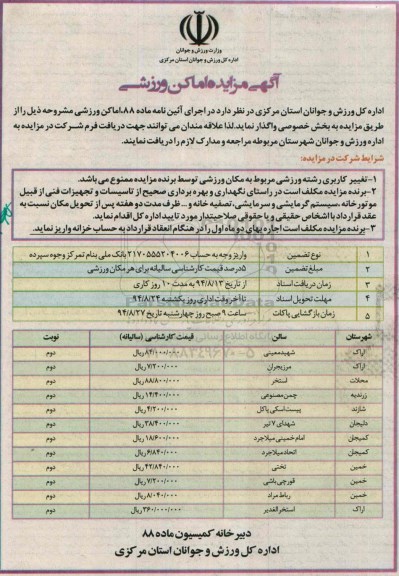 وزارت ورزش و جوانان
اداره کل ورزش و جوانان استان مرکزی
آگهی مزایده اماکن ورزشی
اداره کل ورزش و جوانان استان مرکزی در نظر دارد در اجرای آئین نامه ماده ۸۸، اماکن ورزشی مشروحه ذیل را از
طریق مزایده به بخش خصوصی واگذار نماید. لذا علاقه مندان می توانند جهت دریافت فرم شرکت در مزایده به
اداره ورزش و جوانان شهرستان مربوطه مراجعه و مدارک لازم را دریافت نمایند.
شرایط شرکت در مزایده:
۱-تغییر کاربری رشته ورزشی مربوط به مکان ورزشی توسط برنده مزایده ممنوع می باشد.
۲-برنده مزایده مکلف است در راستای نگهداری و بهره برداری صحیح از تاسیسات و تجهیزات فنی از قبیل
موتورخانه، سیستم گرمایشی و سرمایشی، تصفیه خانه و ... ظرف مدت دو هفته پس از تحویل مکان نسبت به
عقد قرارداد با اشخاص حقیقی و یا حقوقی صلاحیتدار مورد تایید اداره کل اقدام نماید.
۳-برنده مزایده مکلف است اجاره بهای دو ماه اول را در هنگام انعقاد قرارداد به حساب خزانه واریز نماید.
۱ نوع تضمین واریز وجه به حساب ۲۱۷۰۵۵۵۲۰۴۰۰۶ بانک ملی بنام تمرکز وجوه سپرده
۲ مبلغ تضمین ۵درصد قیمت کارشناسی سالیانه برای هر مکان ورزشی
۳ زمان دریافت اسناد از تاریخ ۹۴/۸/۱۳ به مدت ۱۰ روز کاری
۴ مهلت تحویل اسناد تا آخر وقت اداری روز یکشنبه ۹۴/۸/۲۴
۵ زمان بازگشایی پاکات ساعت ۹ صبح روز چهارشنبه تاریخ ۹۴/۸/۲۷
شهرستان سالن قیمت کارشناسی (سالیانه) نوبت
اراک شهید معینی ۸۴/۰۰۰/۰۰۰ریال دوم
اراک مرزیجران ۷/۲۰۰/۰۰۰ریال دوم
محلات استخر ۸۸/۸۰۰/۰۰۰ریال دوم
زرندیه چمن مصنوعی ۱۴/۴۰۰/۰۰۰ریال دوم
شازند پیست اسکی پاکل ۴/۲۰۰/۰۰۰ریال دوم
دلیجان شهدای ۷ تیر ۳۸/۴۰۰/۰۰۰ریال دوم
کمیجان امام خمینی میلاجرد ۱۸/۶۰۰/۰۰۰ریال دوم
کمیجان اتحاد میلاجرد ۶/۸۴۰/۰۰۰ریال دوم
خمین تختی ۴۲/۸۴۰/۰۰۰ریال دوم
خمین قورچی باشی ۷/۲۰۰/۰۰۰ریال دوم
خمین رباط مراد ۸/۰۴۰/۰۰۰ریال دوم
اراک استخر الغدیر ۳۶۰/۰۰۰/۰۰۰ریال دوم
دبیرخانه کمیسیون ماده ۸۸
اداره کل ورزش و جوانان استان مرکزی